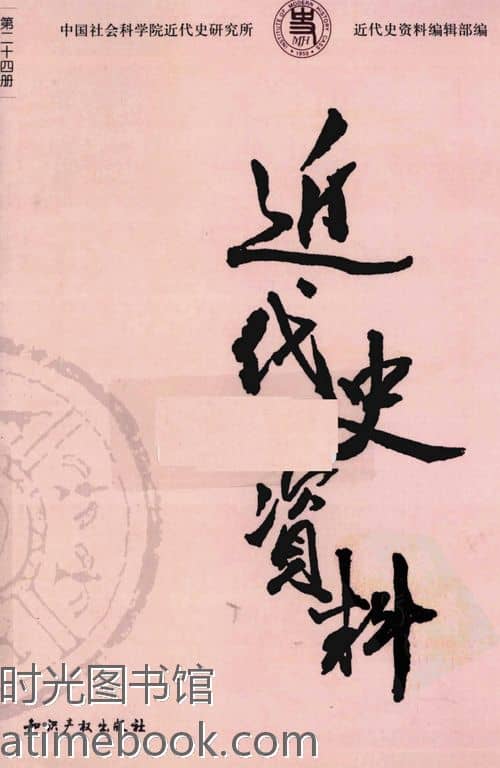 中国社会科学院近代史研究所
INSTITUTE OF MODERN HISTORY CASS
MH
1950
近代史资料编辑部编
第二十四册
近代史資料
时光图书馆
知识产权出版社
atimebook.com